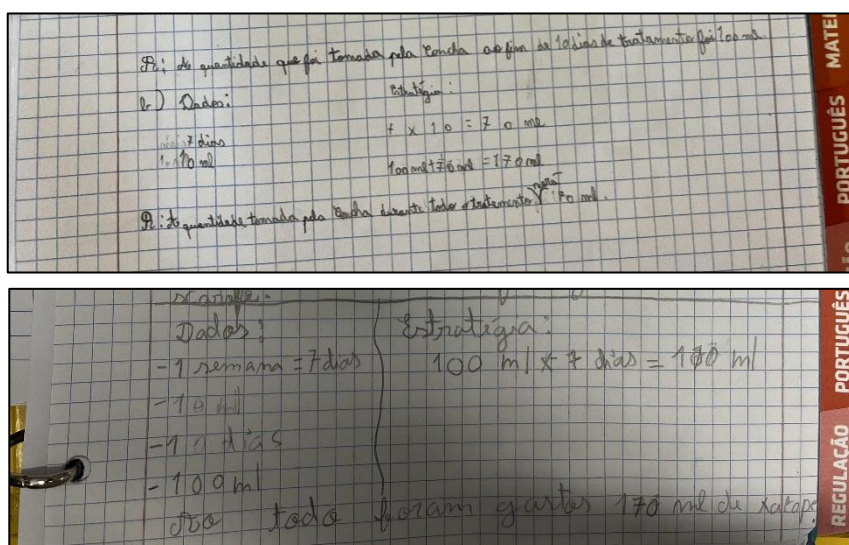 R: A quantidade que foi tomada pela Concha ao fim de 10 dias de tratamento foi 100 ml.
b) Dados:
Estratégia:
7 dias
7 x 10 = 70 ml
10 ml
100 ml + 70 ml = 170 ml
R: A quantidade tomada pela Concha durante todo o tratamento será 170 ml.
MATE
PORTUGUÊS
Dados:
Estratégia:
- 1 semana = 7 dias
100 ml x 7 dias = 170 ml
- 10 ml
dias
- 100 ml
Ao todo foram gastos 170 ml de xarope
PORTUGUÊS
REGULAÇÃO